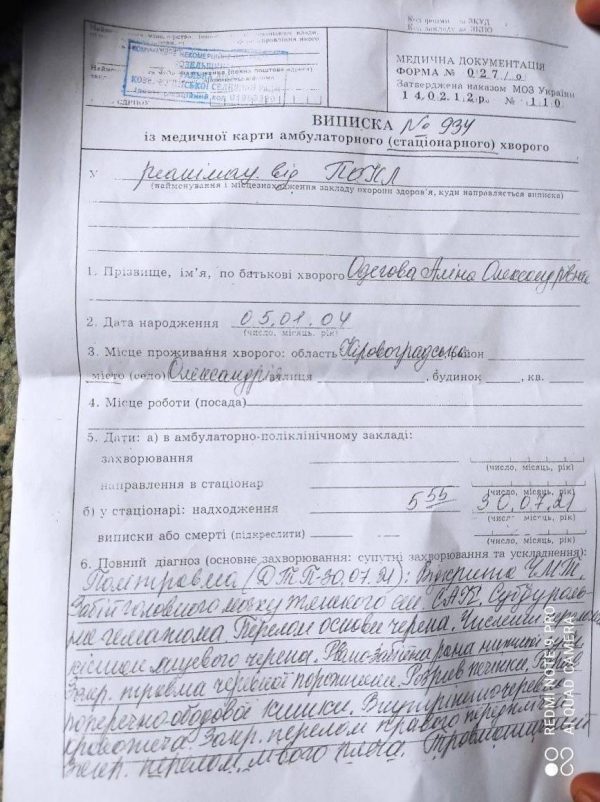 Код форми за ЗКУД
Код закладу за ЗКПО
КОЗЕЛЬЩИНСЬКОЇ СЕЛИЩНОЇ РАДИ
МЕДИЧНА ДОКУМЕНТАЦІЯ
ФОРМА № 027/о
Затверджена наказом МОЗ України
14.02.12р. № 110
ВИПИСКА № 934
із медичної карти амбулаторного (стаціонарного) хворого
У реанімац. від ПОКЛ
(найменування і місцезнаходження закладу охорони здоров'я, куди направляється виписка)
1. Прізвище, ім'я, по батькові хворого Одегова Аліна Олександрівна
2. Дата народження 05.01.04
(число, місяць, рік)
3. Місце проживання хворого: область Кіровоградська район
місто (село) Олександрія вулиця , будинок , кв.
4. Місце роботи (посада)
5. Дати: а) в амбулаторно-поліклінічному закладі:
захворювання
(число, місяць, рік)
направлення в стаціонар
(число, місяць, рік)
б) у стаціонарі: надходження 5 55 30.07.21
(число, місяць, рік)
виписки або смерті (підкреслити)
(число, місяць, рік)
6. Повний діагноз (основне захворювання: супутні захворювання та ускладнення):
Політравма (ДТП-30.07.21): Відкрита ЧМТ.
Забій головного мозку тяжкого ст. САК. Субдураль-
на гематома. Перелом основи черепа. Численні переломи
кісток лицевого черепа. Рвано-забійна рана нижньої
Закр. травма черевної порожнини. Розрив печінки.
поперечно-ободової кишки. Внутрішньочеревна
кровотеча. Закр. перелом правого передпліччя
Закр. перелом лівого плеча. Травматичний
REDMI NOTE 9 PRO
AI QUAD CAMERA